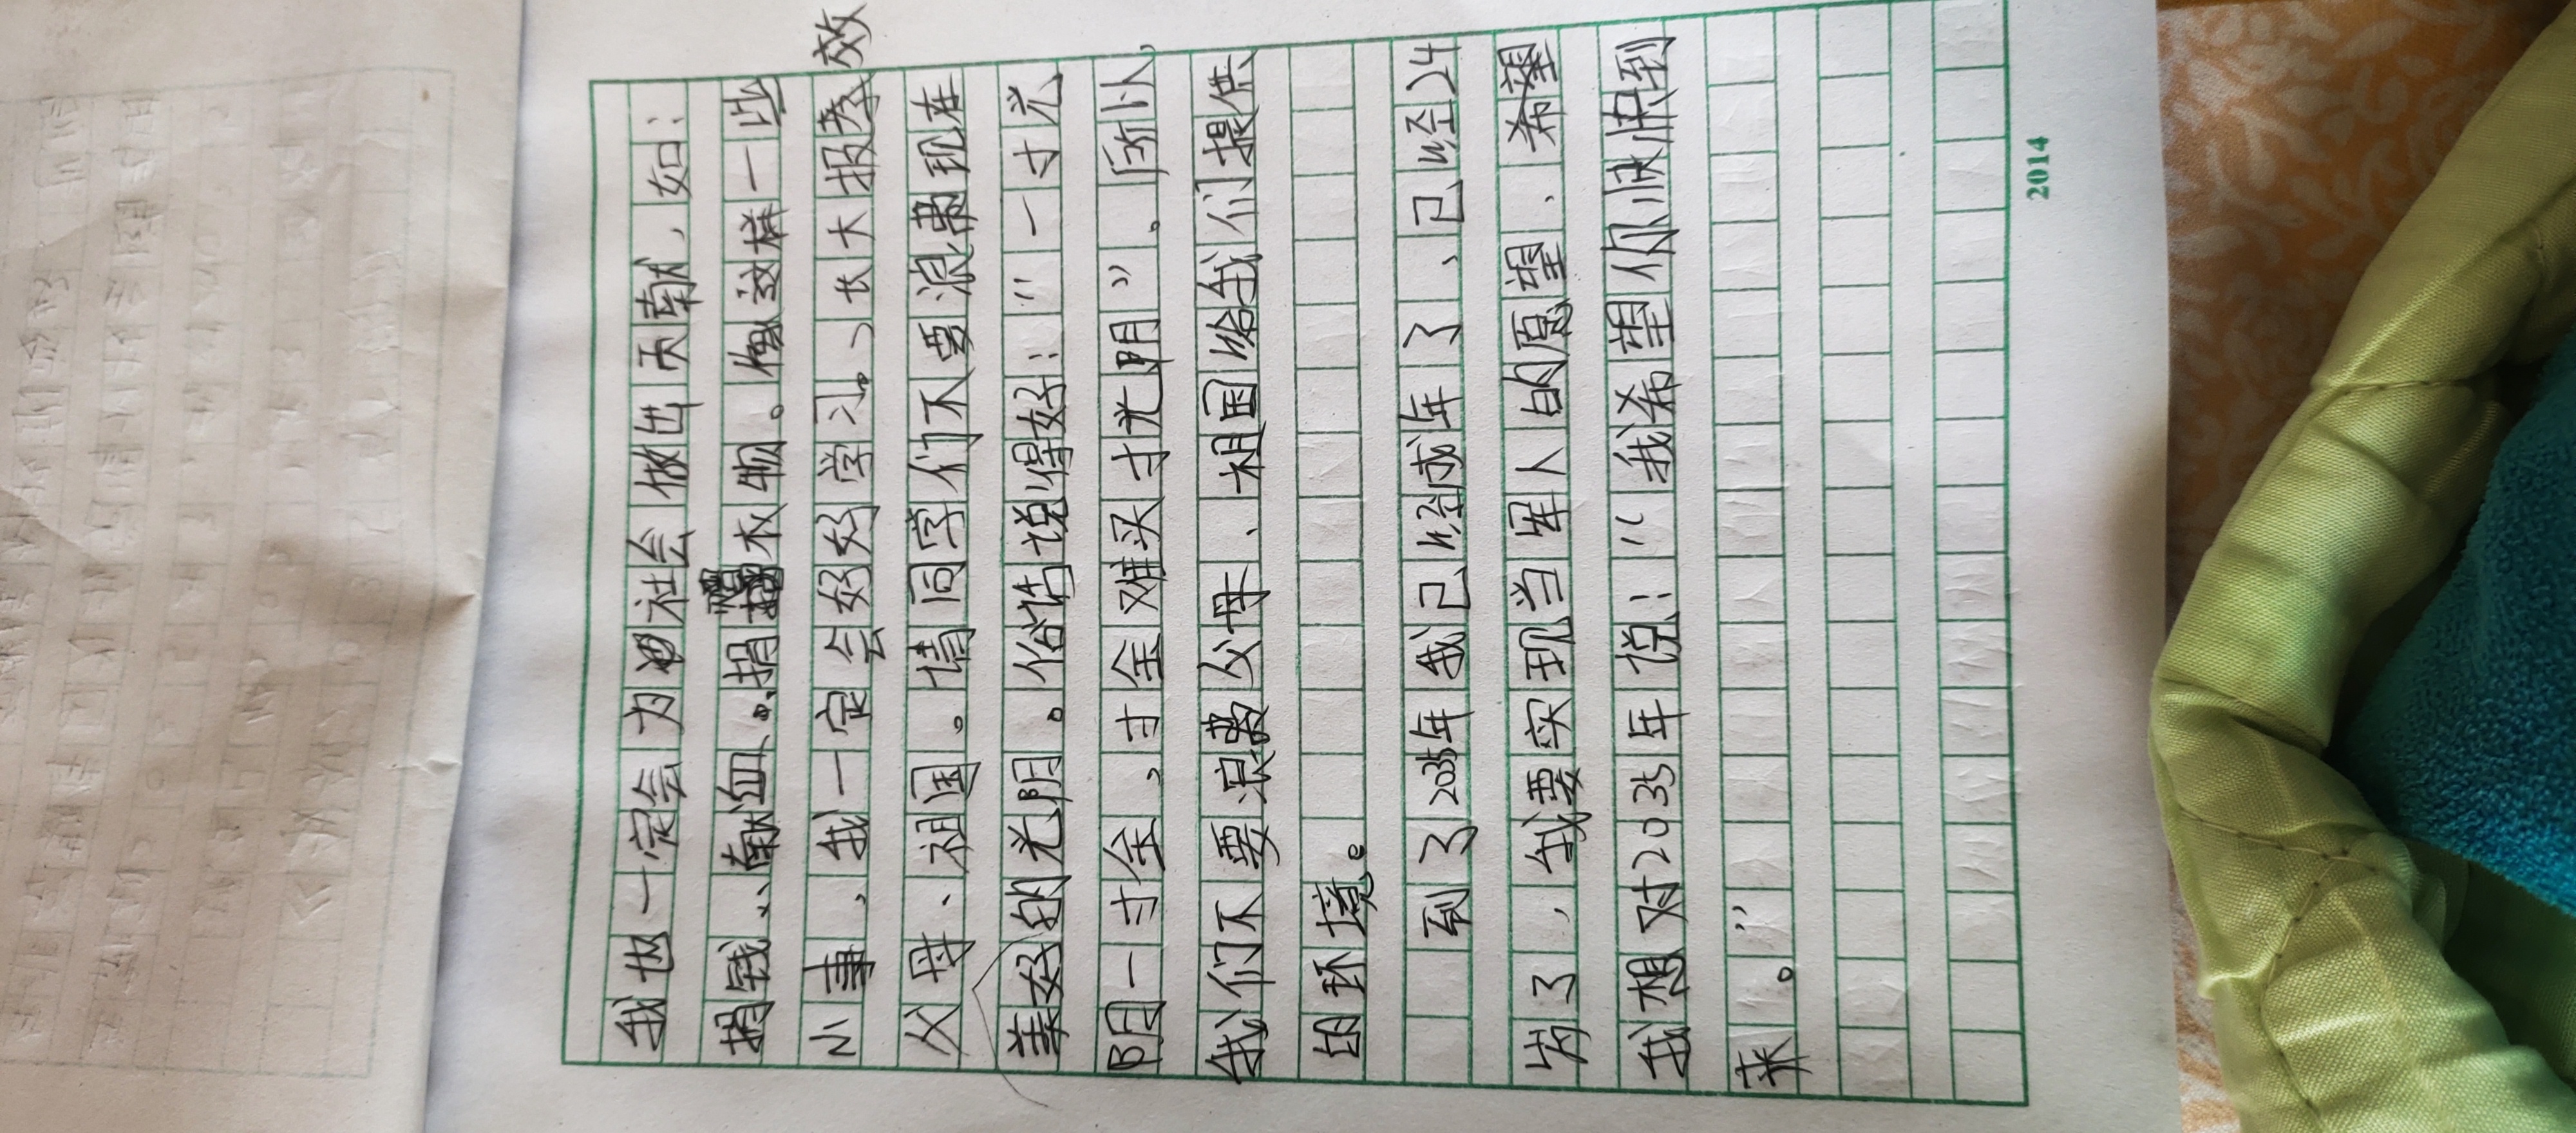 我也一定会为社会做出贡献，如：
捐钱、献血、捐衣物。像这样一些
小事，我一定会好好学习、长大报效
父母、祖国。请同学们不要浪费现在
美好的光阴。俗话说得好：“一寸光
阴一寸金，寸金难买寸光阴”。所以
我们不要浪费父母、祖国给我们提供
的环境。
到了2035年我已经成年了、已经24
岁了，我要实现当军人的愿望、希望
我想对2035年说：“我希望你快快到
来。”
2014